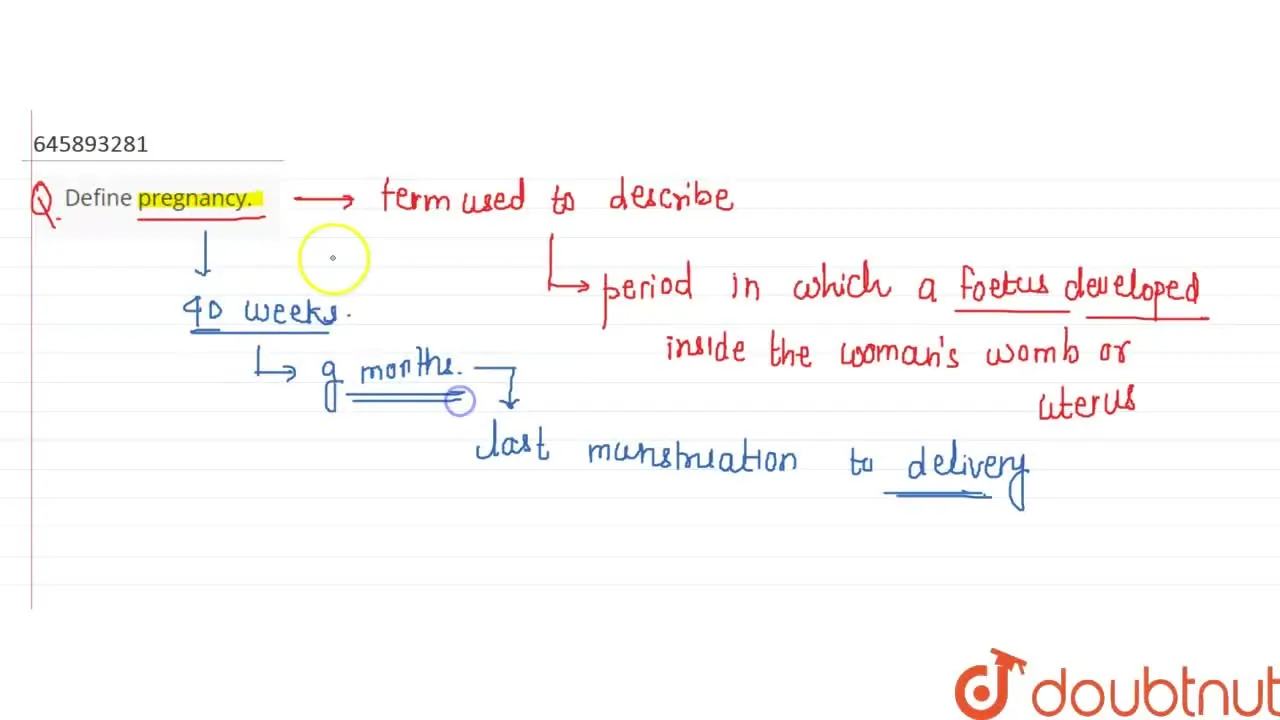 645893281
Q. Define pregnancy. → term used to describe
period in which a foetus developed
inside the woman's womb or
uterus
40 weeks.
9 months.
last munstruation to delivery
doubtnut